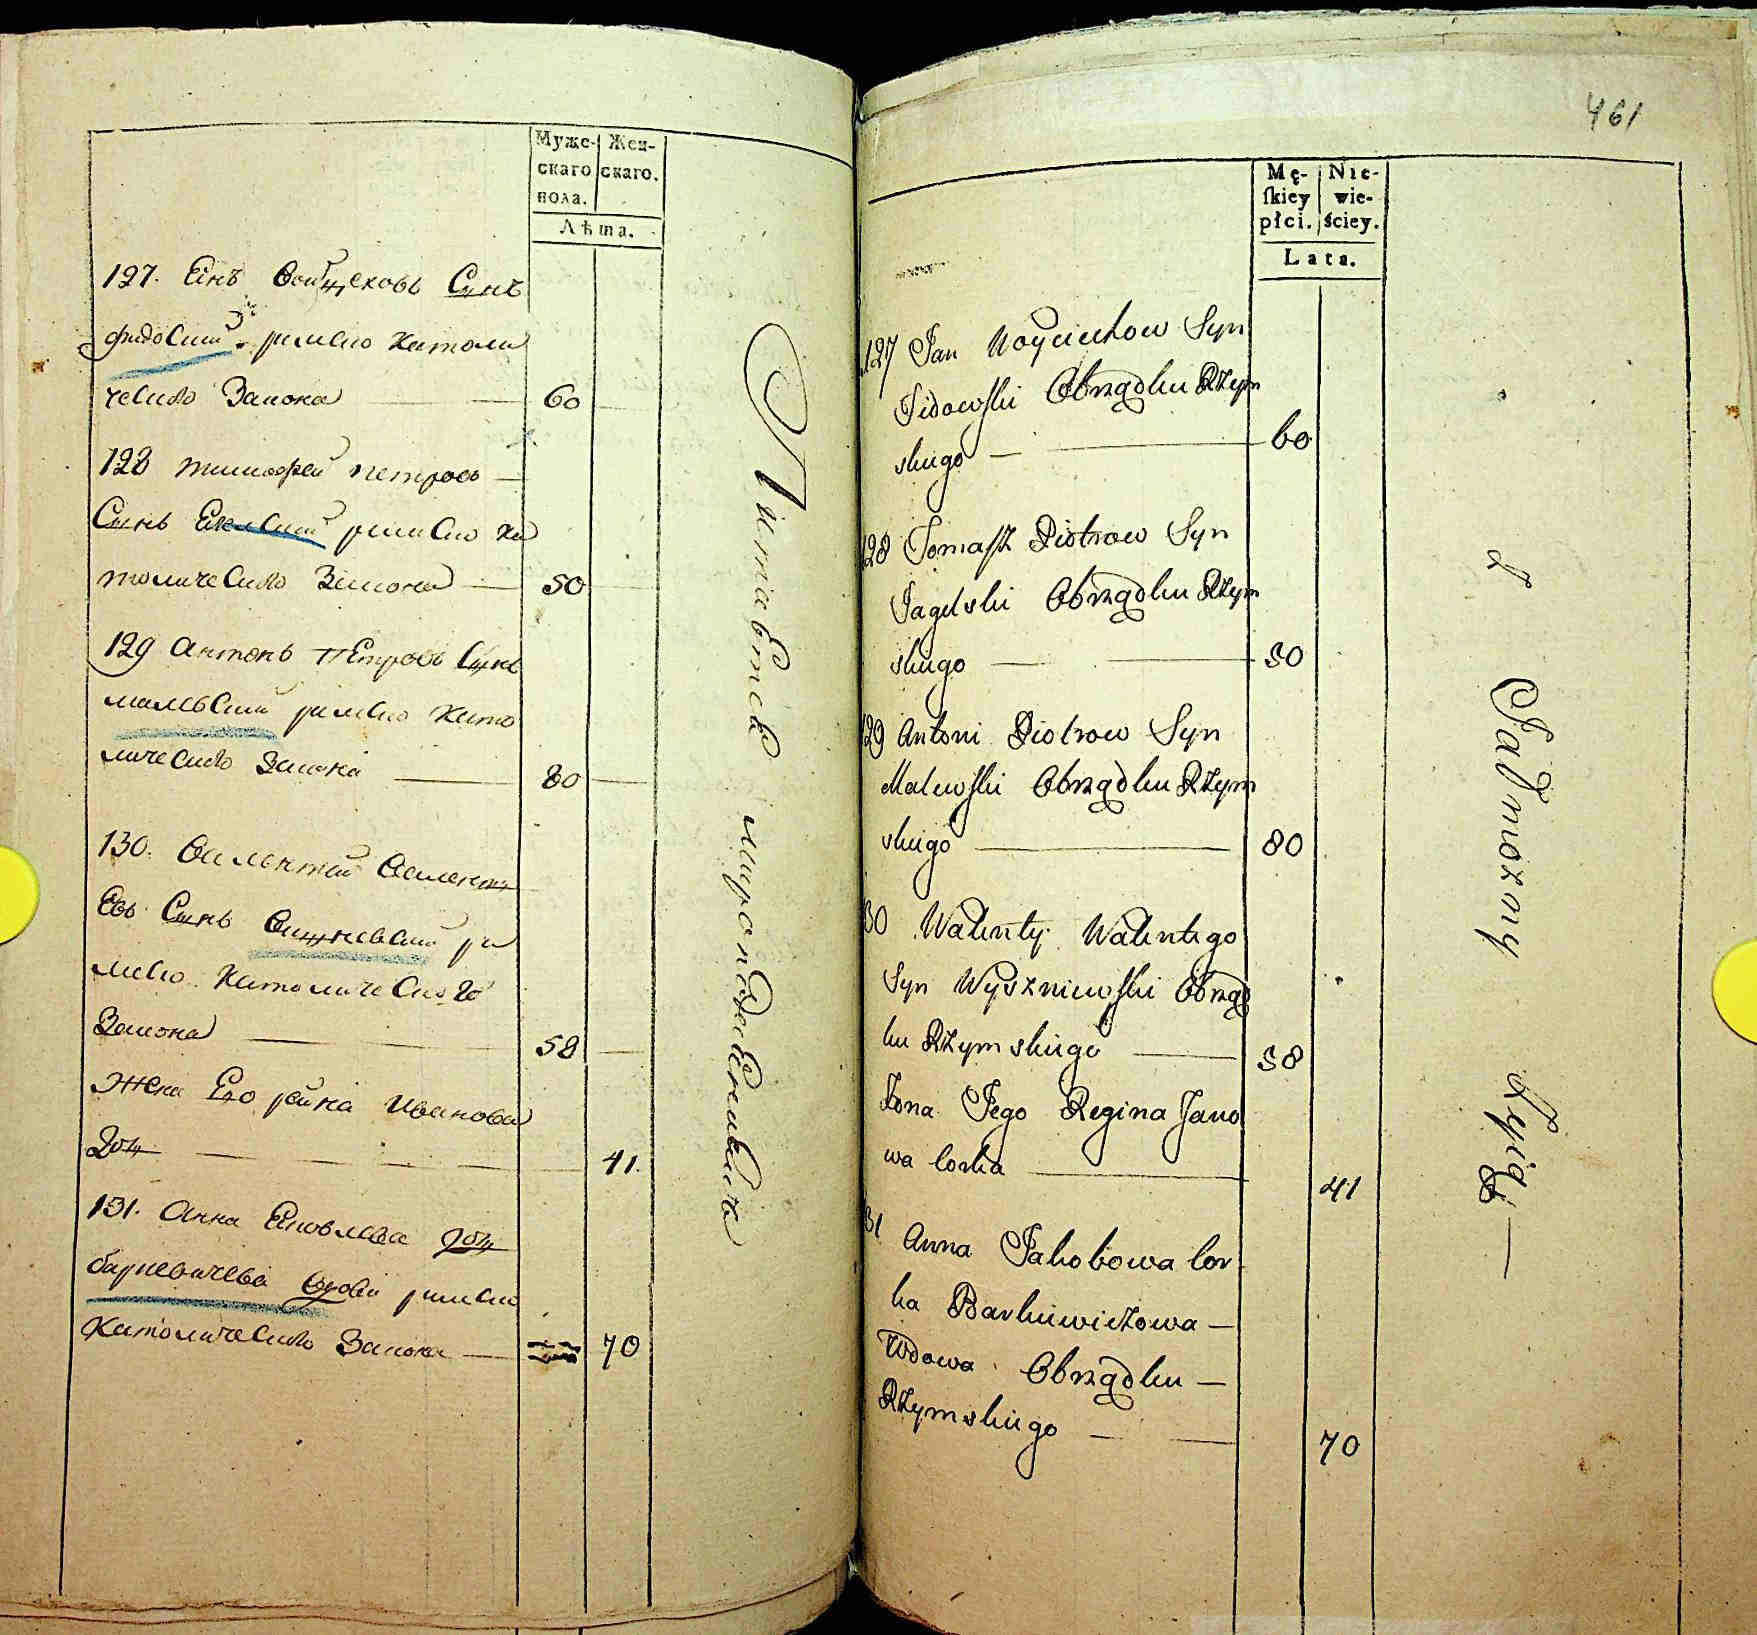 Муже-
скаго
пола.
Жен-
скаго.
Лѣта.
127. Енъ Войцеховъ Сынъ
фидоский римско Католи
ческаго Закона
60
128 тимофей петровъ
Сынъ римско ка
толическаго Закона
50
129 антонъ петровъ Сынъ
малевский римско Като
лическаго Закона
80
130. валентий валенти
евъ Сынъ вишневский ри
мско Католическаго
Закона
58
жена Его Ивановa
дочь
41.
131. анна Яковлева дочь
барневичева вдова римско
Католическаго Закона
70
Питается
461
Mę-
skiey
płci.
Nie-
wie-
ściey.
Lata.
127 Jan Woyciechow Syn
Fidowski Obrządku Rzym
skiego
60
128 Tomasz Piotrow Syn
Jagelski Obrządku Rzym
skiego
50
129 Antoni Piotrow Syn
Malewski Obrządku Rzym
skiego
80
30 Walenty Walentego
Syn Wyszniewski Obrząd
ku Rzymskiego
58
Żona Jego Regina Jano
wa Corka
41
31 Anna Jakobowa Cor
ka Barkiewiczowa
Wdowa Obrządku
Rzymskiego
70
z Jałmożny żyią